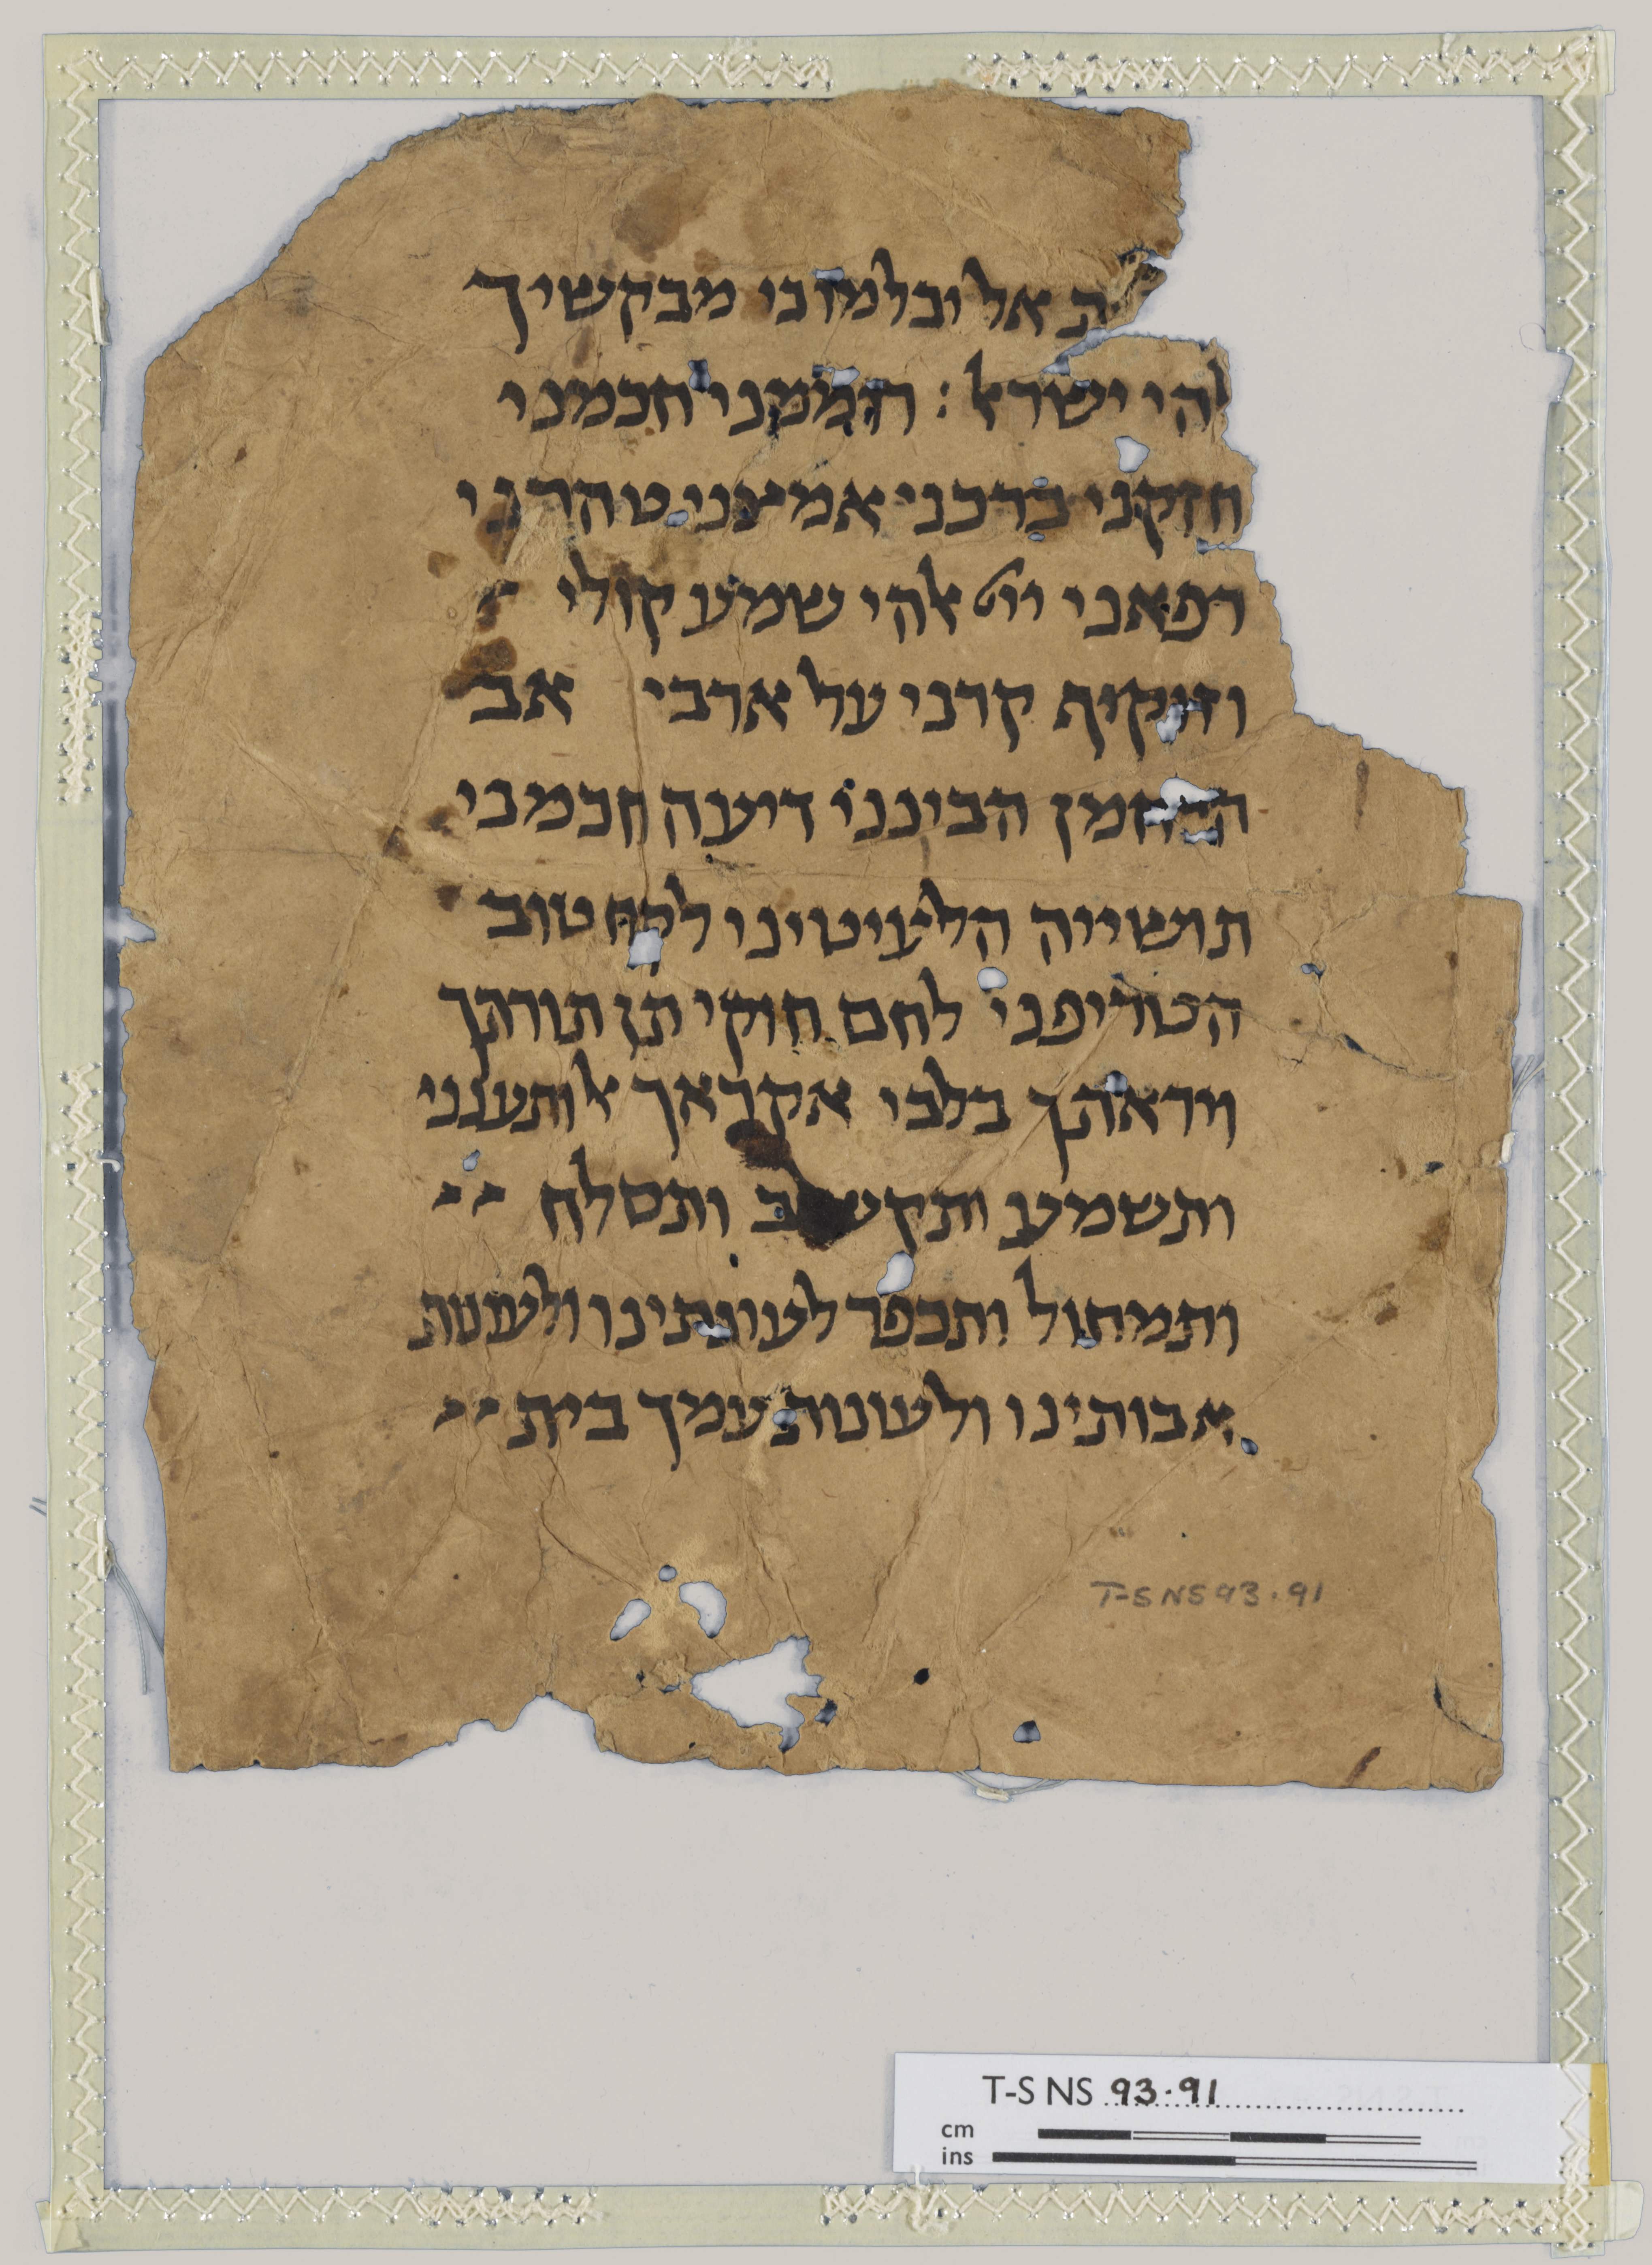 אל יכלמו בי מבקשיך
להי ישראל : רוממני חכמני
חזקני ברכני אמיצני טהריני
רפאני ייי אלהי שמע קולי
ותקיף קרני על אויבי אב
הרחמן הביננו דיעה חכמני
תושייה הלעיטינו לקח טוב
הטריפני לחם חוקי תן תורתך
ויראתך בלבי אקראך ותענני
ותשמע ותקשיב ותסלח
ותמחול ותכפר לעונתינו ולעונת
אבותינו ולעונות עמך בית
T-S NS 93.91
T-S NS 93.91
cm
ins